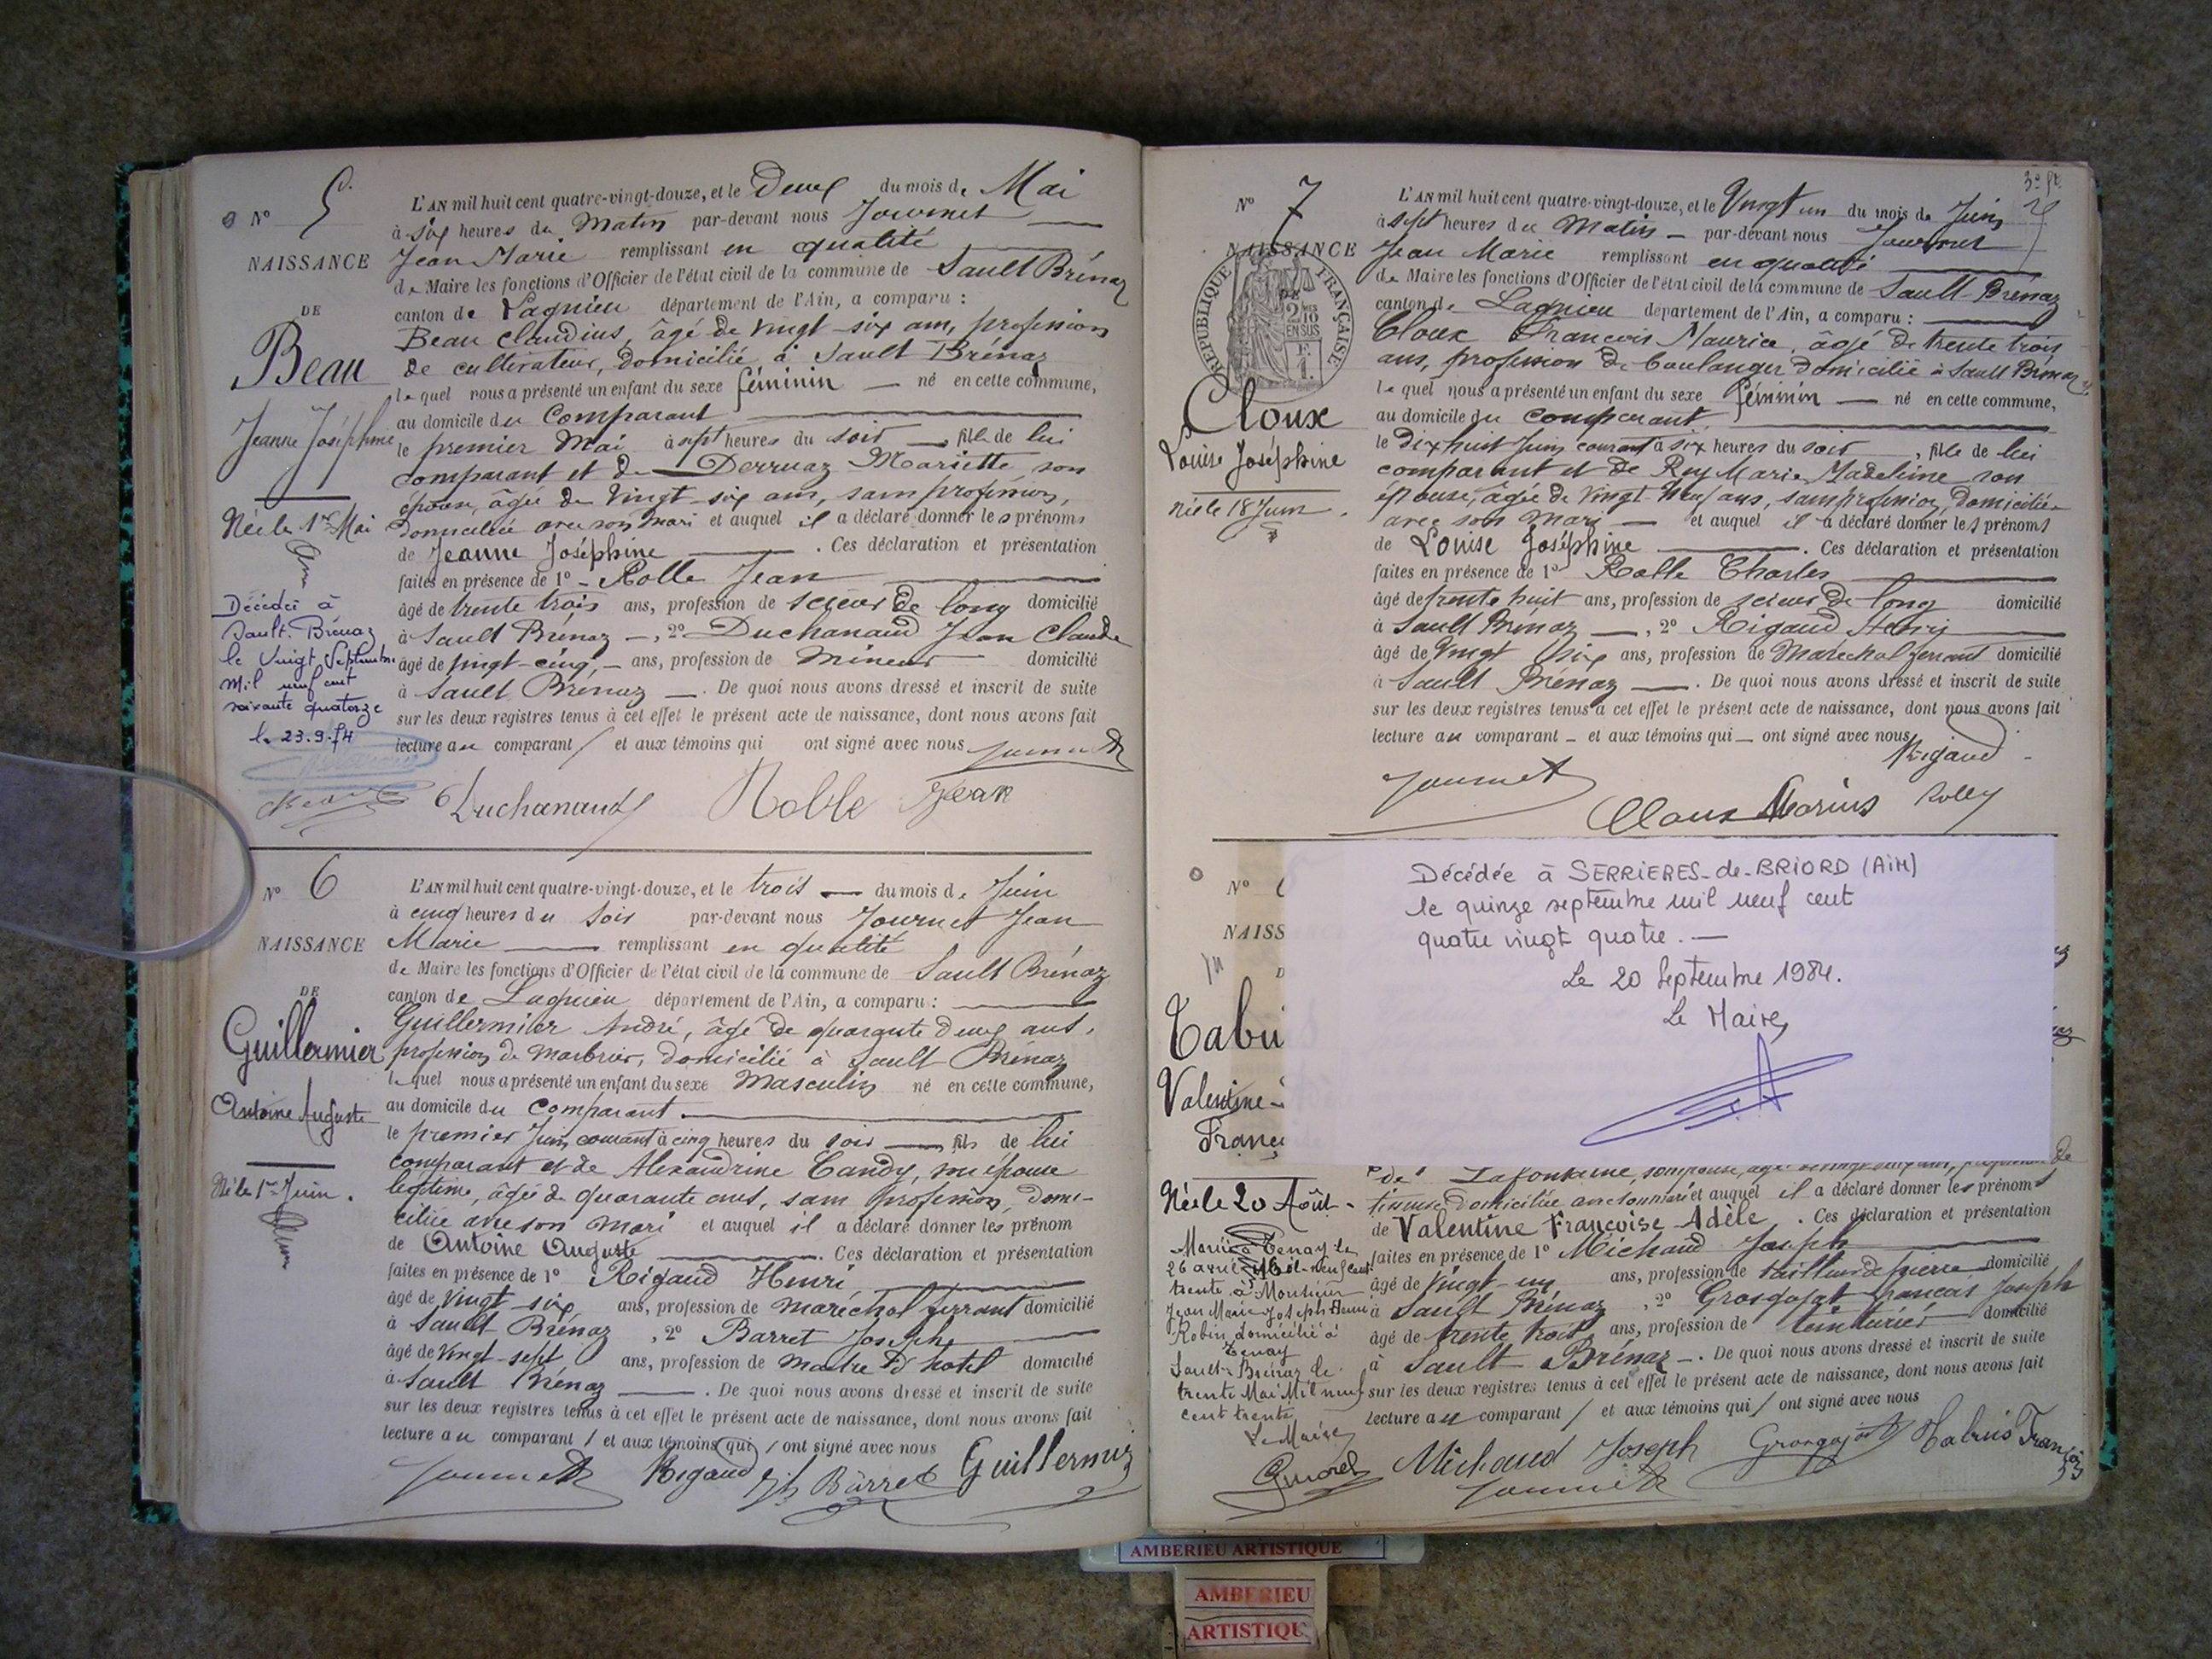 N° 5.
NAISSANCE
DE
Beau
Jeanne Joséphine
Née le 1er Mai
Décédée à
Sault-Brénaz
le Vingt Septembre
mil neuf cent
soixante quatorze
le 23.9.74
L'AN mil huit cent quatre-vingt-douze, et le Deux du mois de Mai
à six heures du Matin par-devant nous Journet
Jean Marie remplissant en qualité
de Maire les fonctions d'Officier de l'état civil de la commune de Sault Brénaz
canton de Lagnieu département de l'Ain, a comparu :
Beau Claudius, âgé de vingt-six ans, profession
de cultivateur, domicilié à Sault Brénaz
lequel nous a présenté un enfant du sexe féminin né en cette commune,
au domicile du Comparant
le premier Mai à sept heures du soir fille de lui
comparant et de Derruaz Mariette son
épouse, âgée de Vingt-six ans, sans profession,
domiciliée avec son mari et auquel il a déclaré donner les prénoms
de Jeanne Joséphine . Ces déclaration et présentation
faites en présence de 1° Rolle Jean
âgé de trente trois ans, profession de scieur de long domicilié
à Sault Brénaz , 2° Duchanaud Jean Claude
âgé de vingt-cinq, ans, profession de Mineur domicilié
à Sault Brénaz . De quoi nous avons dressé et inscrit de suite
sur les deux registres tenus à cet effet le présent acte de naissance, dont nous avons fait
lecture au comparant / et aux témoins qui ont signé avec nous
Journet
Duchanaud Rolle Jean
N° 6
NAISSANCE
DE
Guillermier
Antoine Auguste
Né le 1er Juin.
L'AN mil huit cent quatre-vingt-douze, et le trois du mois de Juin
à cinq heures du Soir par-devant nous Journet Jean
Marie remplissant en qualité
de Maire les fonctions d'Officier de l'état civil de la commune de Sault Brénaz
canton de Lagnieu département de l'Ain, a comparu :
Guillermier André, âgé de quarante deux ans,
profession de Marbrier, domicilié à Sault Brénaz
lequel nous a présenté un enfant du sexe Masculin né en cette commune,
au domicile du Comparant.
le premier Juin courant à cinq heures du soir fils de lui
comparant et de Alexandrine Candy, son épouse
légitime, âgée de quarante ans, sans profession, domi-
ciliée avec son mari et auquel il a déclaré donner les prénom
de Antoine Auguste . Ces déclaration et présentation
faites en présence de 1° Rigaud Henri,
âgé de vingt-six ans, profession de maréchal ferrant domicilié
à Sault Brénaz , 2° Barret Joseph
âgé de vingt-sept ans, profession de Maitre d'hotel domicilié
à Sault Brénaz . De quoi nous avons dressé et inscrit de suite
sur les deux registres tenus à cet effet le présent acte de naissance, dont nous avons fait
lecture au comparant / et aux témoins qui / ont signé avec nous
Journet Rigaud Barret Guillermier
N° 7
NAISSANCE
DE
REPUBLIQUE FRANÇAISE
2/10 EN SUS
Cloux
Louise Joséphine
née le 18 Juin.
L'AN mil huit cent quatre-vingt-douze, et le Vingt un du mois de Juin
à sept heures du Matin par-devant nous Journet
Jean Marie remplissant en qualité
de Maire les fonctions d'Officier de l'état civil de la commune de Sault-Brénaz
canton de Lagnieu département de l'Ain, a comparu :
Cloux François Maurice, âgé de trente trois
ans, profession de boulanger domicilié à Sault Brénaz
lequel nous a présenté un enfant du sexe féminin né en cette commune,
au domicile du comparant
le dix huit Juin courant à six heures du soir , fille de lui
comparant et de Rey Marie Madeleine son
épouse, âgée de Vingt-neuf ans, sans profession, domiciliée
avec son mari et auquel il a déclaré donner les prénoms
de Louise Joséphine . Ces déclaration et présentation
faites en présence de 1° Rolle Charles
âgé de trente huit ans, profession de scieur de long domicilié
à Sault Brénaz , 2° Rigaud Henri
âgé de Vingt Six ans, profession de Maréchal ferrant domicilié
à Sault Brénaz . De quoi nous avons dressé et inscrit de suite
sur les deux registres tenus à cet effet le présent acte de naissance, dont nous avons fait
lecture au comparant et aux témoins qui ont signé avec nous
Rigaud
Journet
Cloux Marius
Décédée à SERRIERES-de-BRIORD (AIN)
le quinze septembre mil neuf cent
quatre vingt quatre.
Le 20 Septembre 1984.
Le Maire,
N°
NAISS
Tabu
Valentine-
França
Née le 20 Août.
Mariée à Tenay le
26 avril Mil-neuf cent
trente à Monsieur
Jean Marie Joseph Henri
Robin domicilié à
Tenay
Sault-Brénaz le
trente Mai Mil neuf
cent trente
Le Maire
de Lafontaine, son épouse,
tisseuse domiciliée avec son mari et auquel il a déclaré donner les prénoms
de Valentine Françoise Adèle . Ces déclaration et présentation
faites en présence de 1° Michaud Joseph
âgé de vingt-un ans, profession de tailleur de pierre domicilié
à Sault Brénaz , 2° Grosgojat François Joseph
âgé de trente trois ans, profession de teinturier domicilié
à Sault Brénaz . De quoi nous avons dressé et inscrit de suite
sur les deux registres tenus à cet effet le présent acte de naissance, dont nous avons fait
lecture au comparant / et aux témoins qui / ont signé avec nous
Michaud Joseph Grosgojat Tabuis François
Journet
AMBERIEU ARTISTIQUE
AMBERIEU
ARTISTIQU